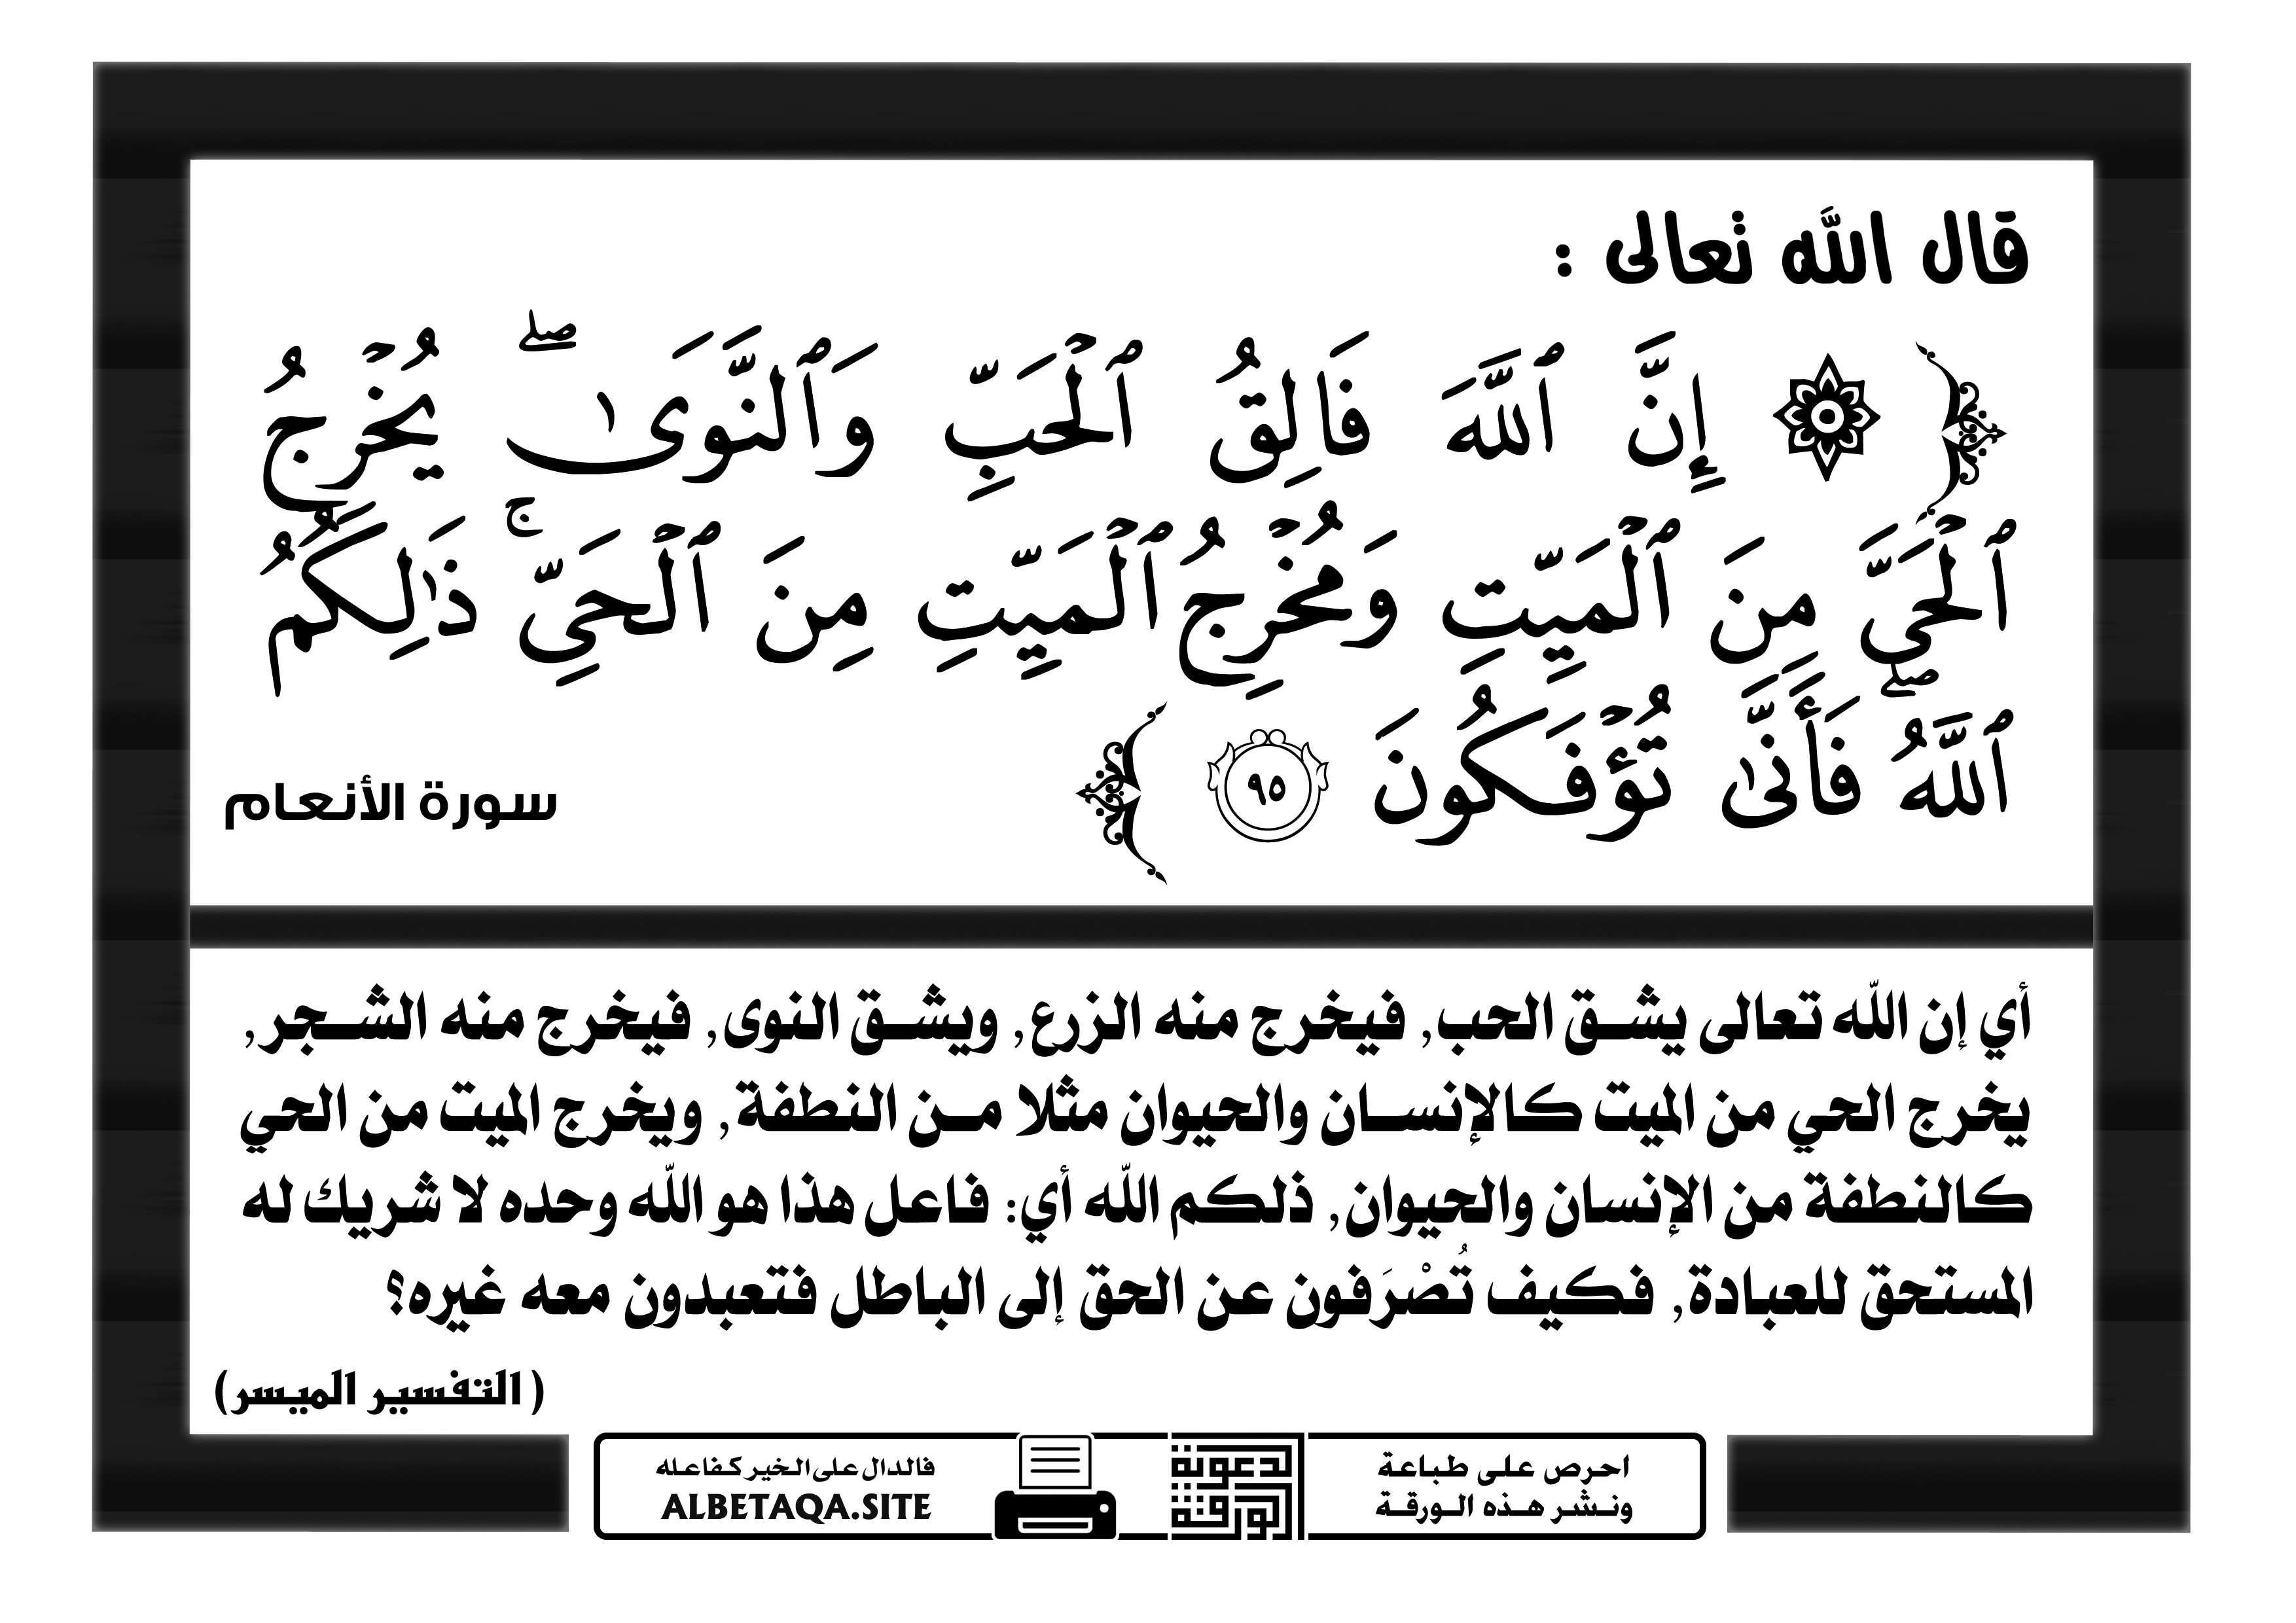 قال الله تعالى :
﴿ ۞ إِنَّ ٱللَّهَ فَالِقُ ٱلْحَبِّ وَٱلنَّوَىٰ ۖ يُخْرِجُ
ٱلْحَيَّ مِنَ ٱلْمَيِّتِ وَمُخْرِجُ ٱلْمَيِّتِ مِنَ ٱلْحَيِّ ۚ ذَٰلِكُمُ
ٱللَّهُ ۖ فَأَنَّىٰ تُؤْفَكُونَ ٩٥ ﴾
سورة الأنعام
أي إن الله تعالى يشق الحب, فيخرج منه الزرع, ويشق النوى, فيخرج منه الشجر,
يخرج الحي من الميت كالإنسان والحيوان مثلا من النطفة, ويخرج الميت من الحي
كالنطفة من الإنسان والحيوان, ذلكم الله أي: فاعل هذا هو الله وحده لا شريك له
المستحق للعبادة, فكيف تُصْرَفون عن الحق إلى الباطل فتعبدون معه غيره؟
( التفسير الميسر)
احرص على طباعة
ونشر هذه الورقة
الدعوية
الورقة
فالدال على الخير كفاعله
ALBETAQA.SITE